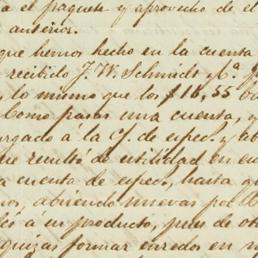 a el paquete y aprovecho de el
anterior.
que hemos hecho en la cuenta
recibido J. W. Schmidt y Cª.
lo mismo que los $18,55
Como pasar una cuenta, y
cargado á la C/ de espec. y ab
que resultó de utilidad en
a cuenta de espec., hasta qu
nos, abriendo nuevas por
có á su producto, pues de otr
quizas formar enredos en